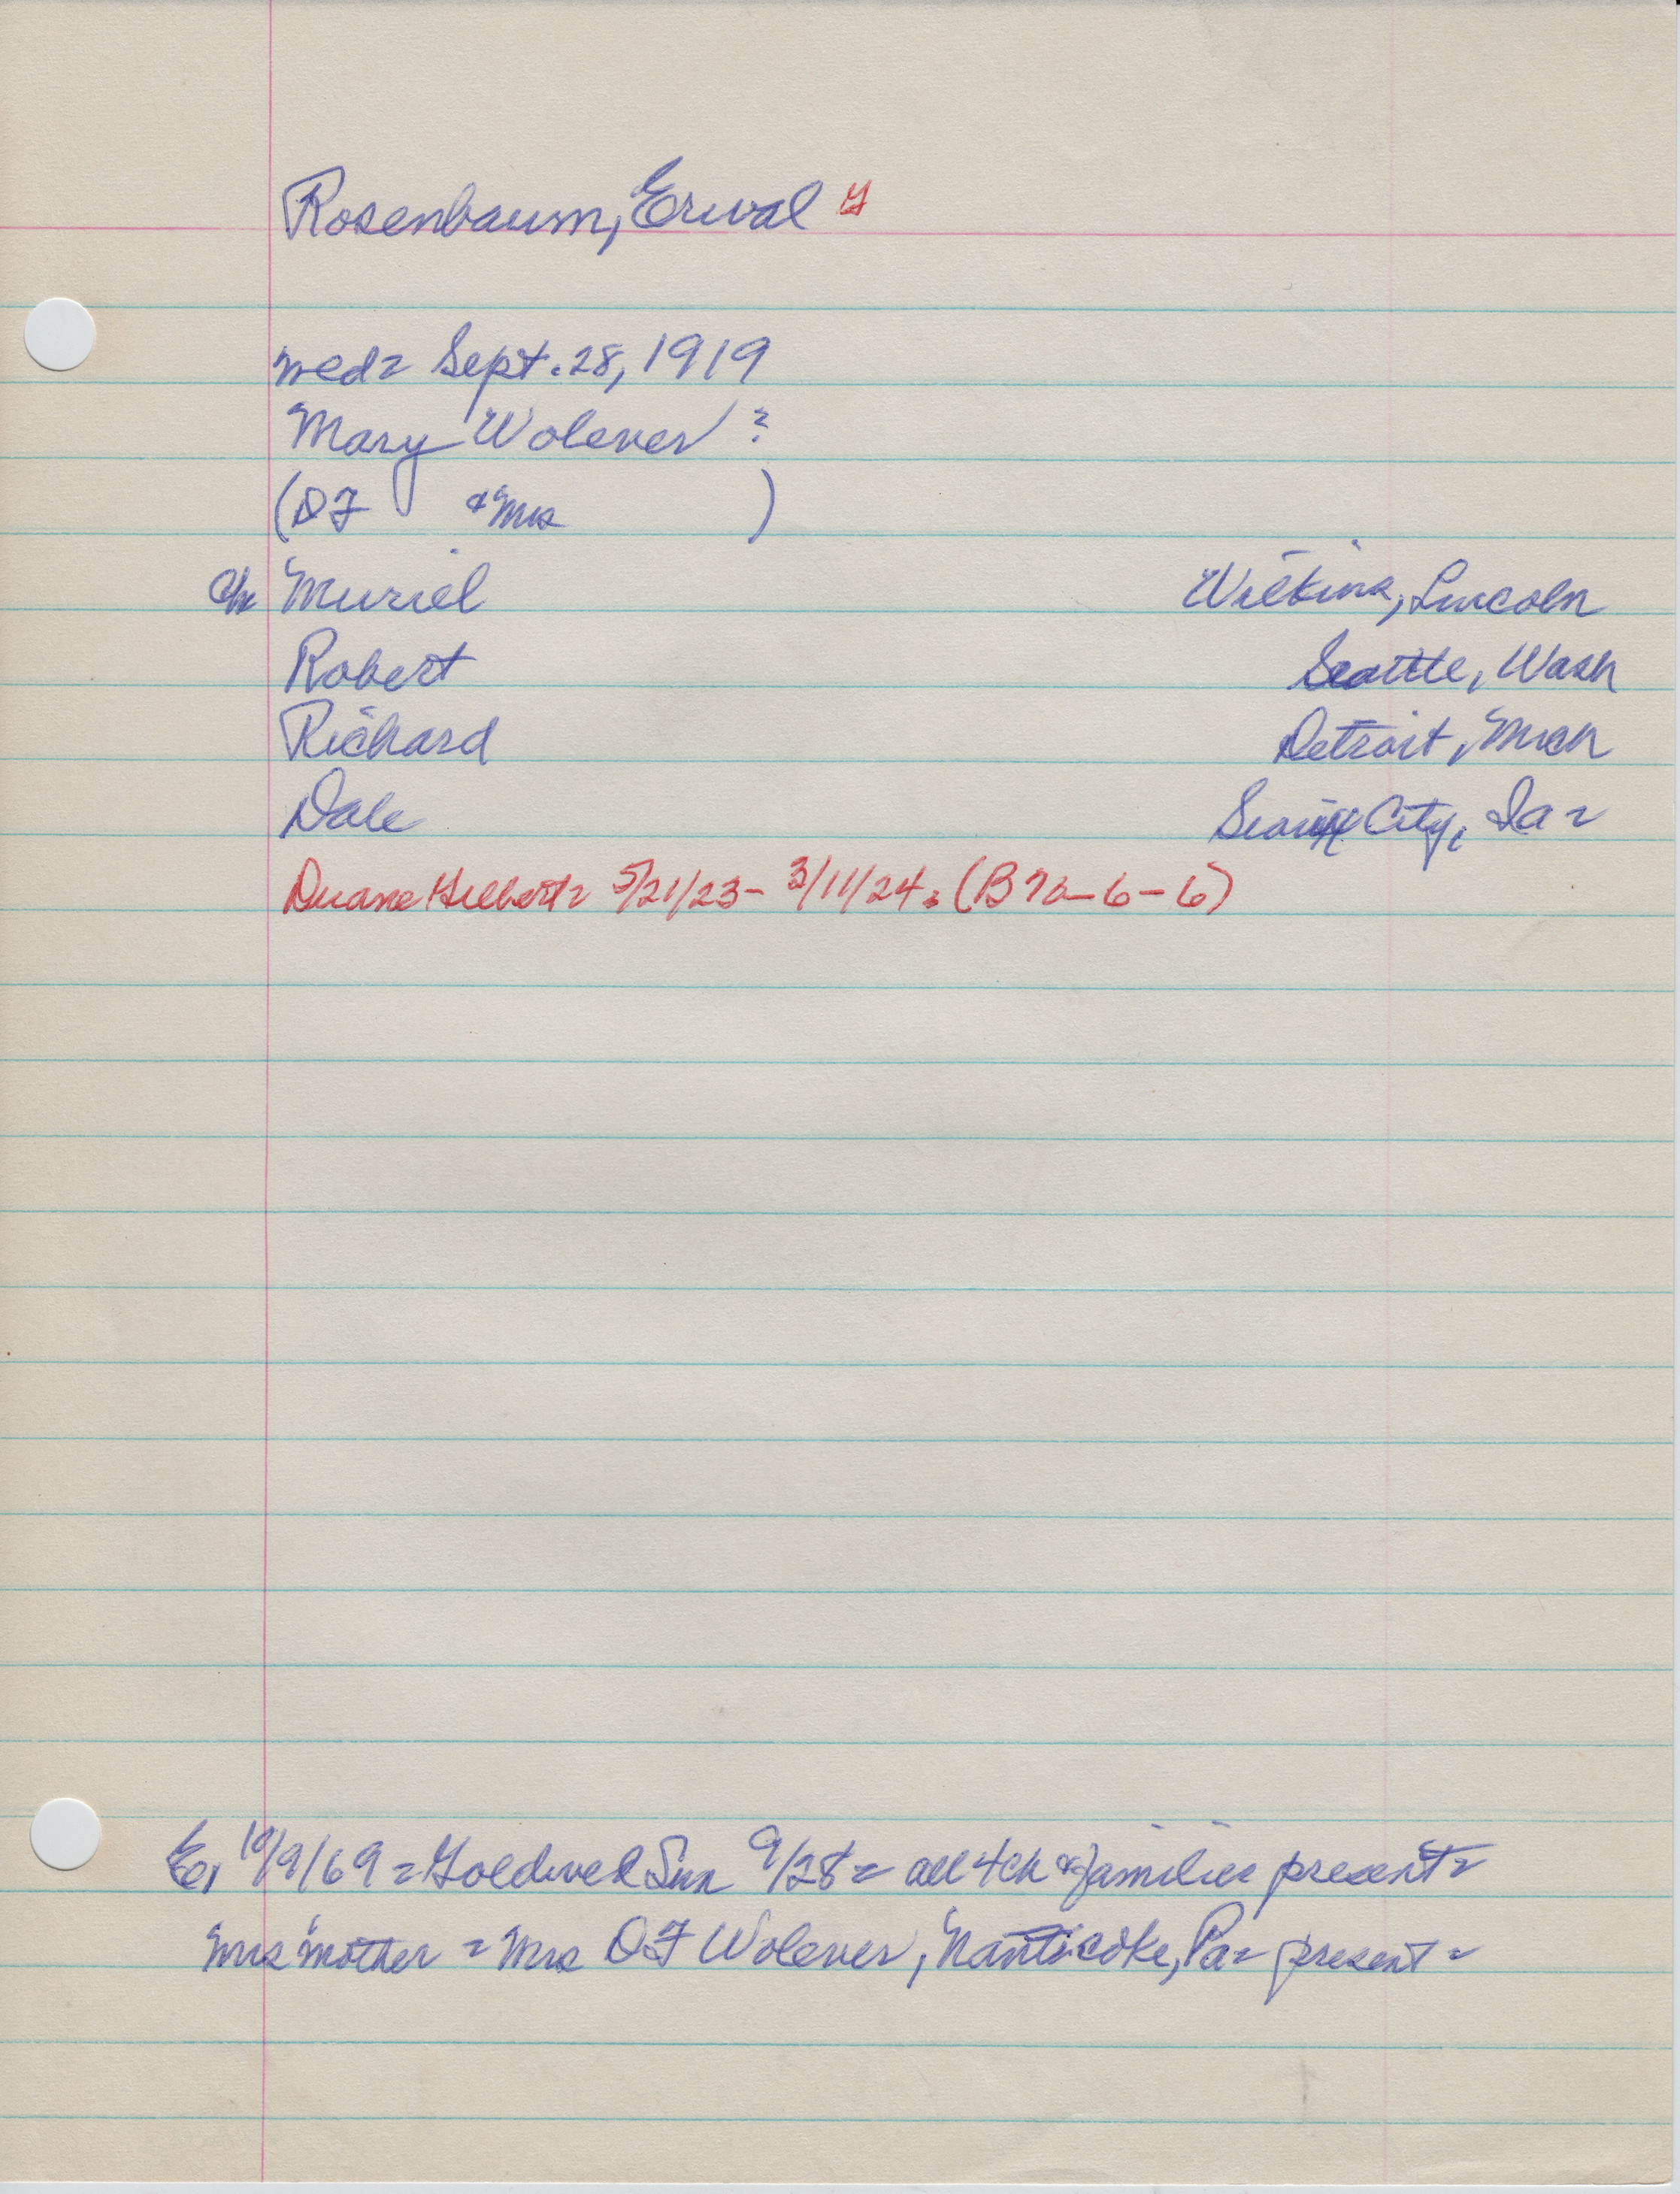 Rosenbaum, Erwal G
wed= Sept. 28, 1919
Mary Wolever ?
(DF & Mrs )
ch Muriel Wilkins, Lincoln
Robert Seattle, Wash
Richard Detroit, Mich
Dale Sioux City, Ia=
Duane Hilbert= 5/21/23- 3/11/24. (B -6-6)
10/9/69= Goldwed Sun 9/28= all 4 ch & families present=
Mrs' mother = Mrs DF Wolever, Nanticoke, Pa= present=